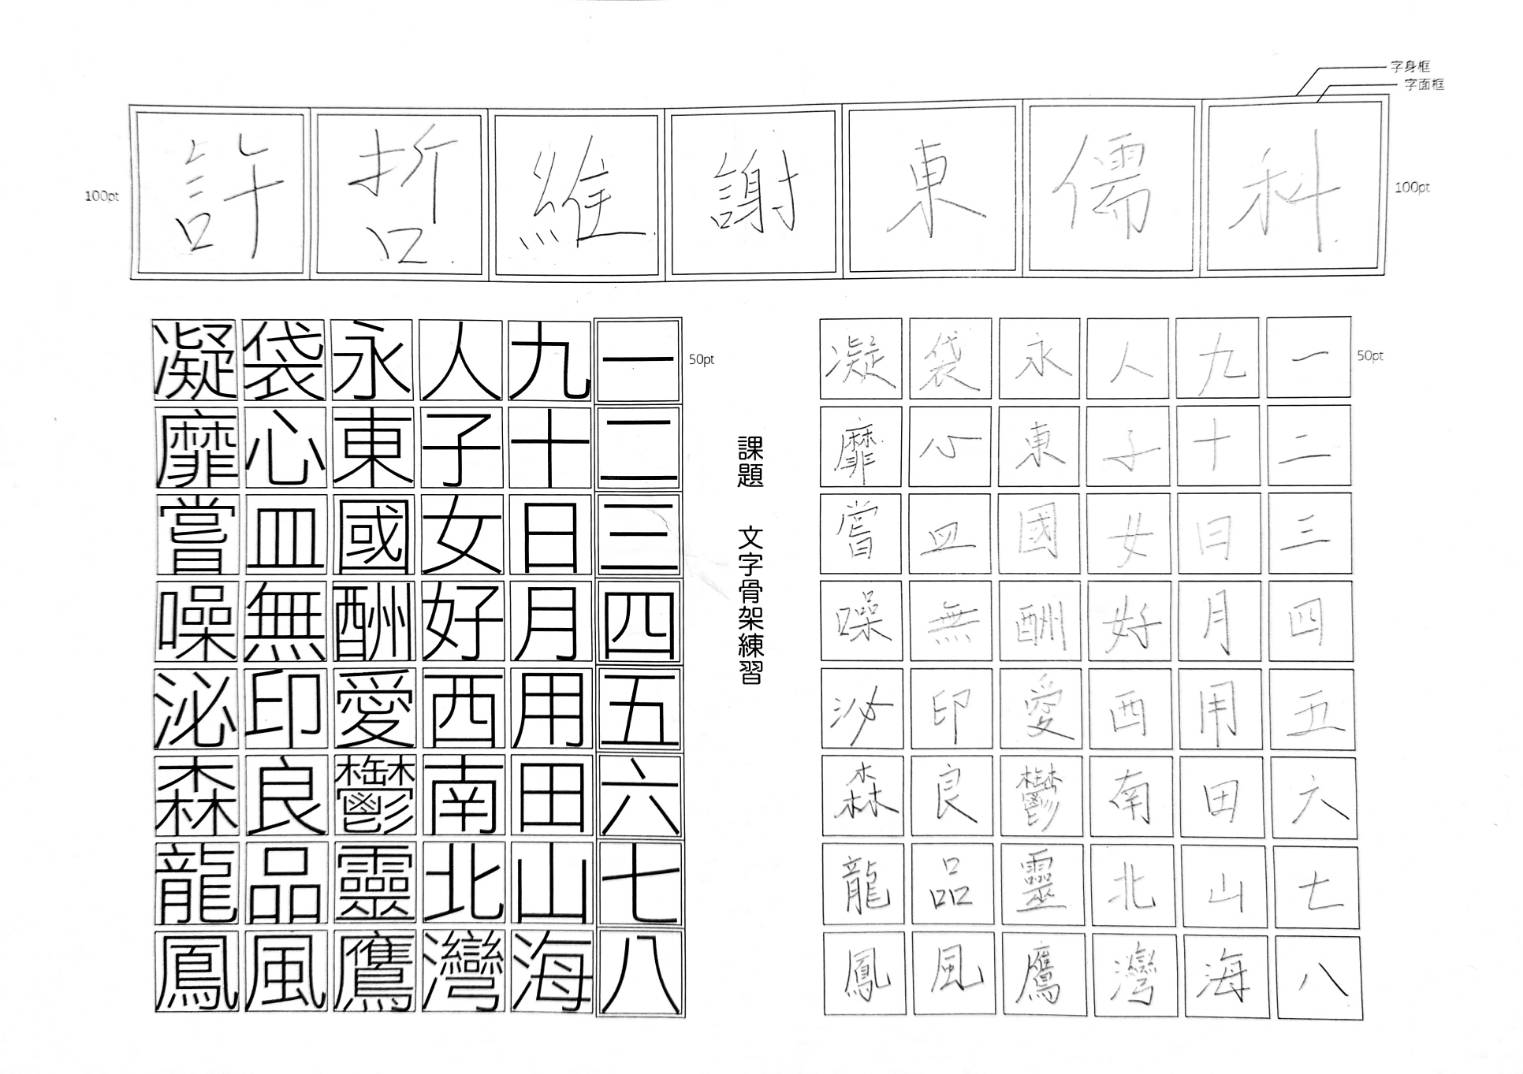 字身框
字面框
100pt
許哲維謝東儒科
100pt
凝袋永人九一
50pt
靡心東子十二
嘗皿國女日三
噪無酬好月四
泌印愛西用五
森良鬱南田六
龍品靈北山七
鳳風鷹灣海八
課題 文字骨架練習
凝袋永人九一
50pt
靡心東子十二
嘗皿國女日三
噪無酬好月四
泌印愛西用五
森良鬱南田六
龍品靈北山七
鳳風鷹灣海八